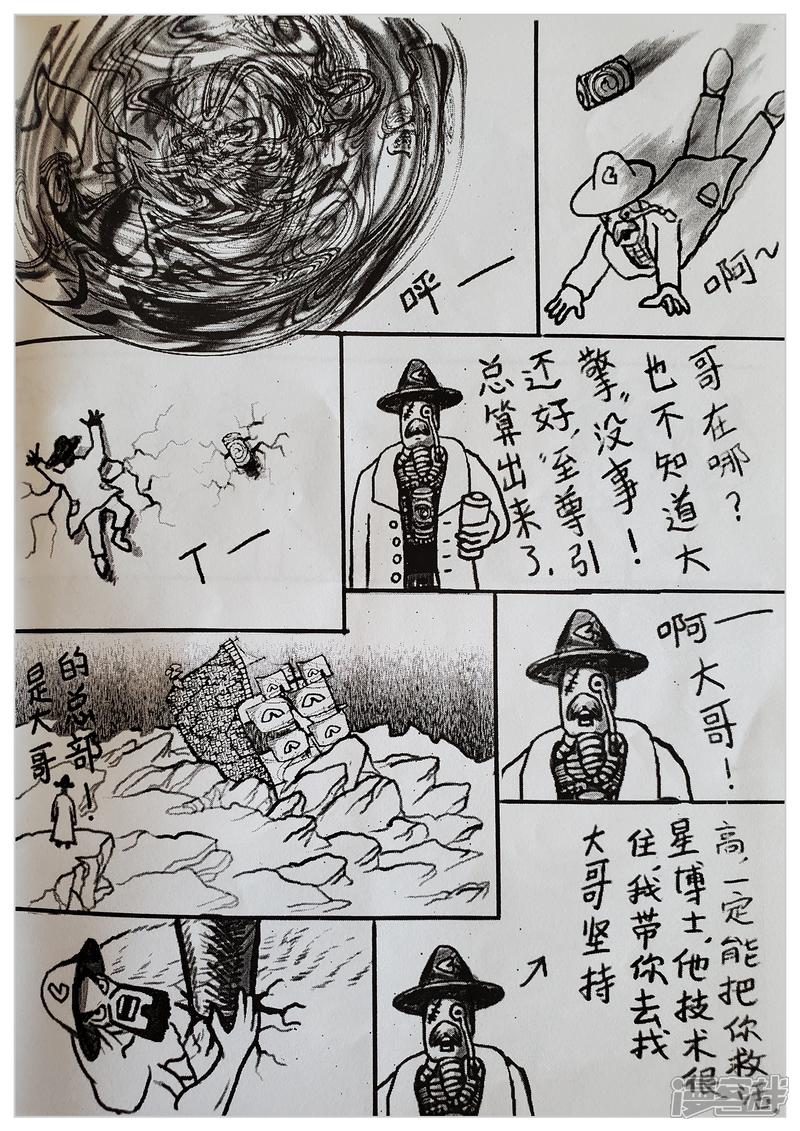 呼一
啊~
丁一
总算出来了,
还好,“至尊引
擎”没事!
也不知道大
哥在哪?
是大哥
的总部!
啊一
大哥!
大哥坚持
住,我带你去找
星博士,他技术很
高,一定能把你救活,
漫客栈